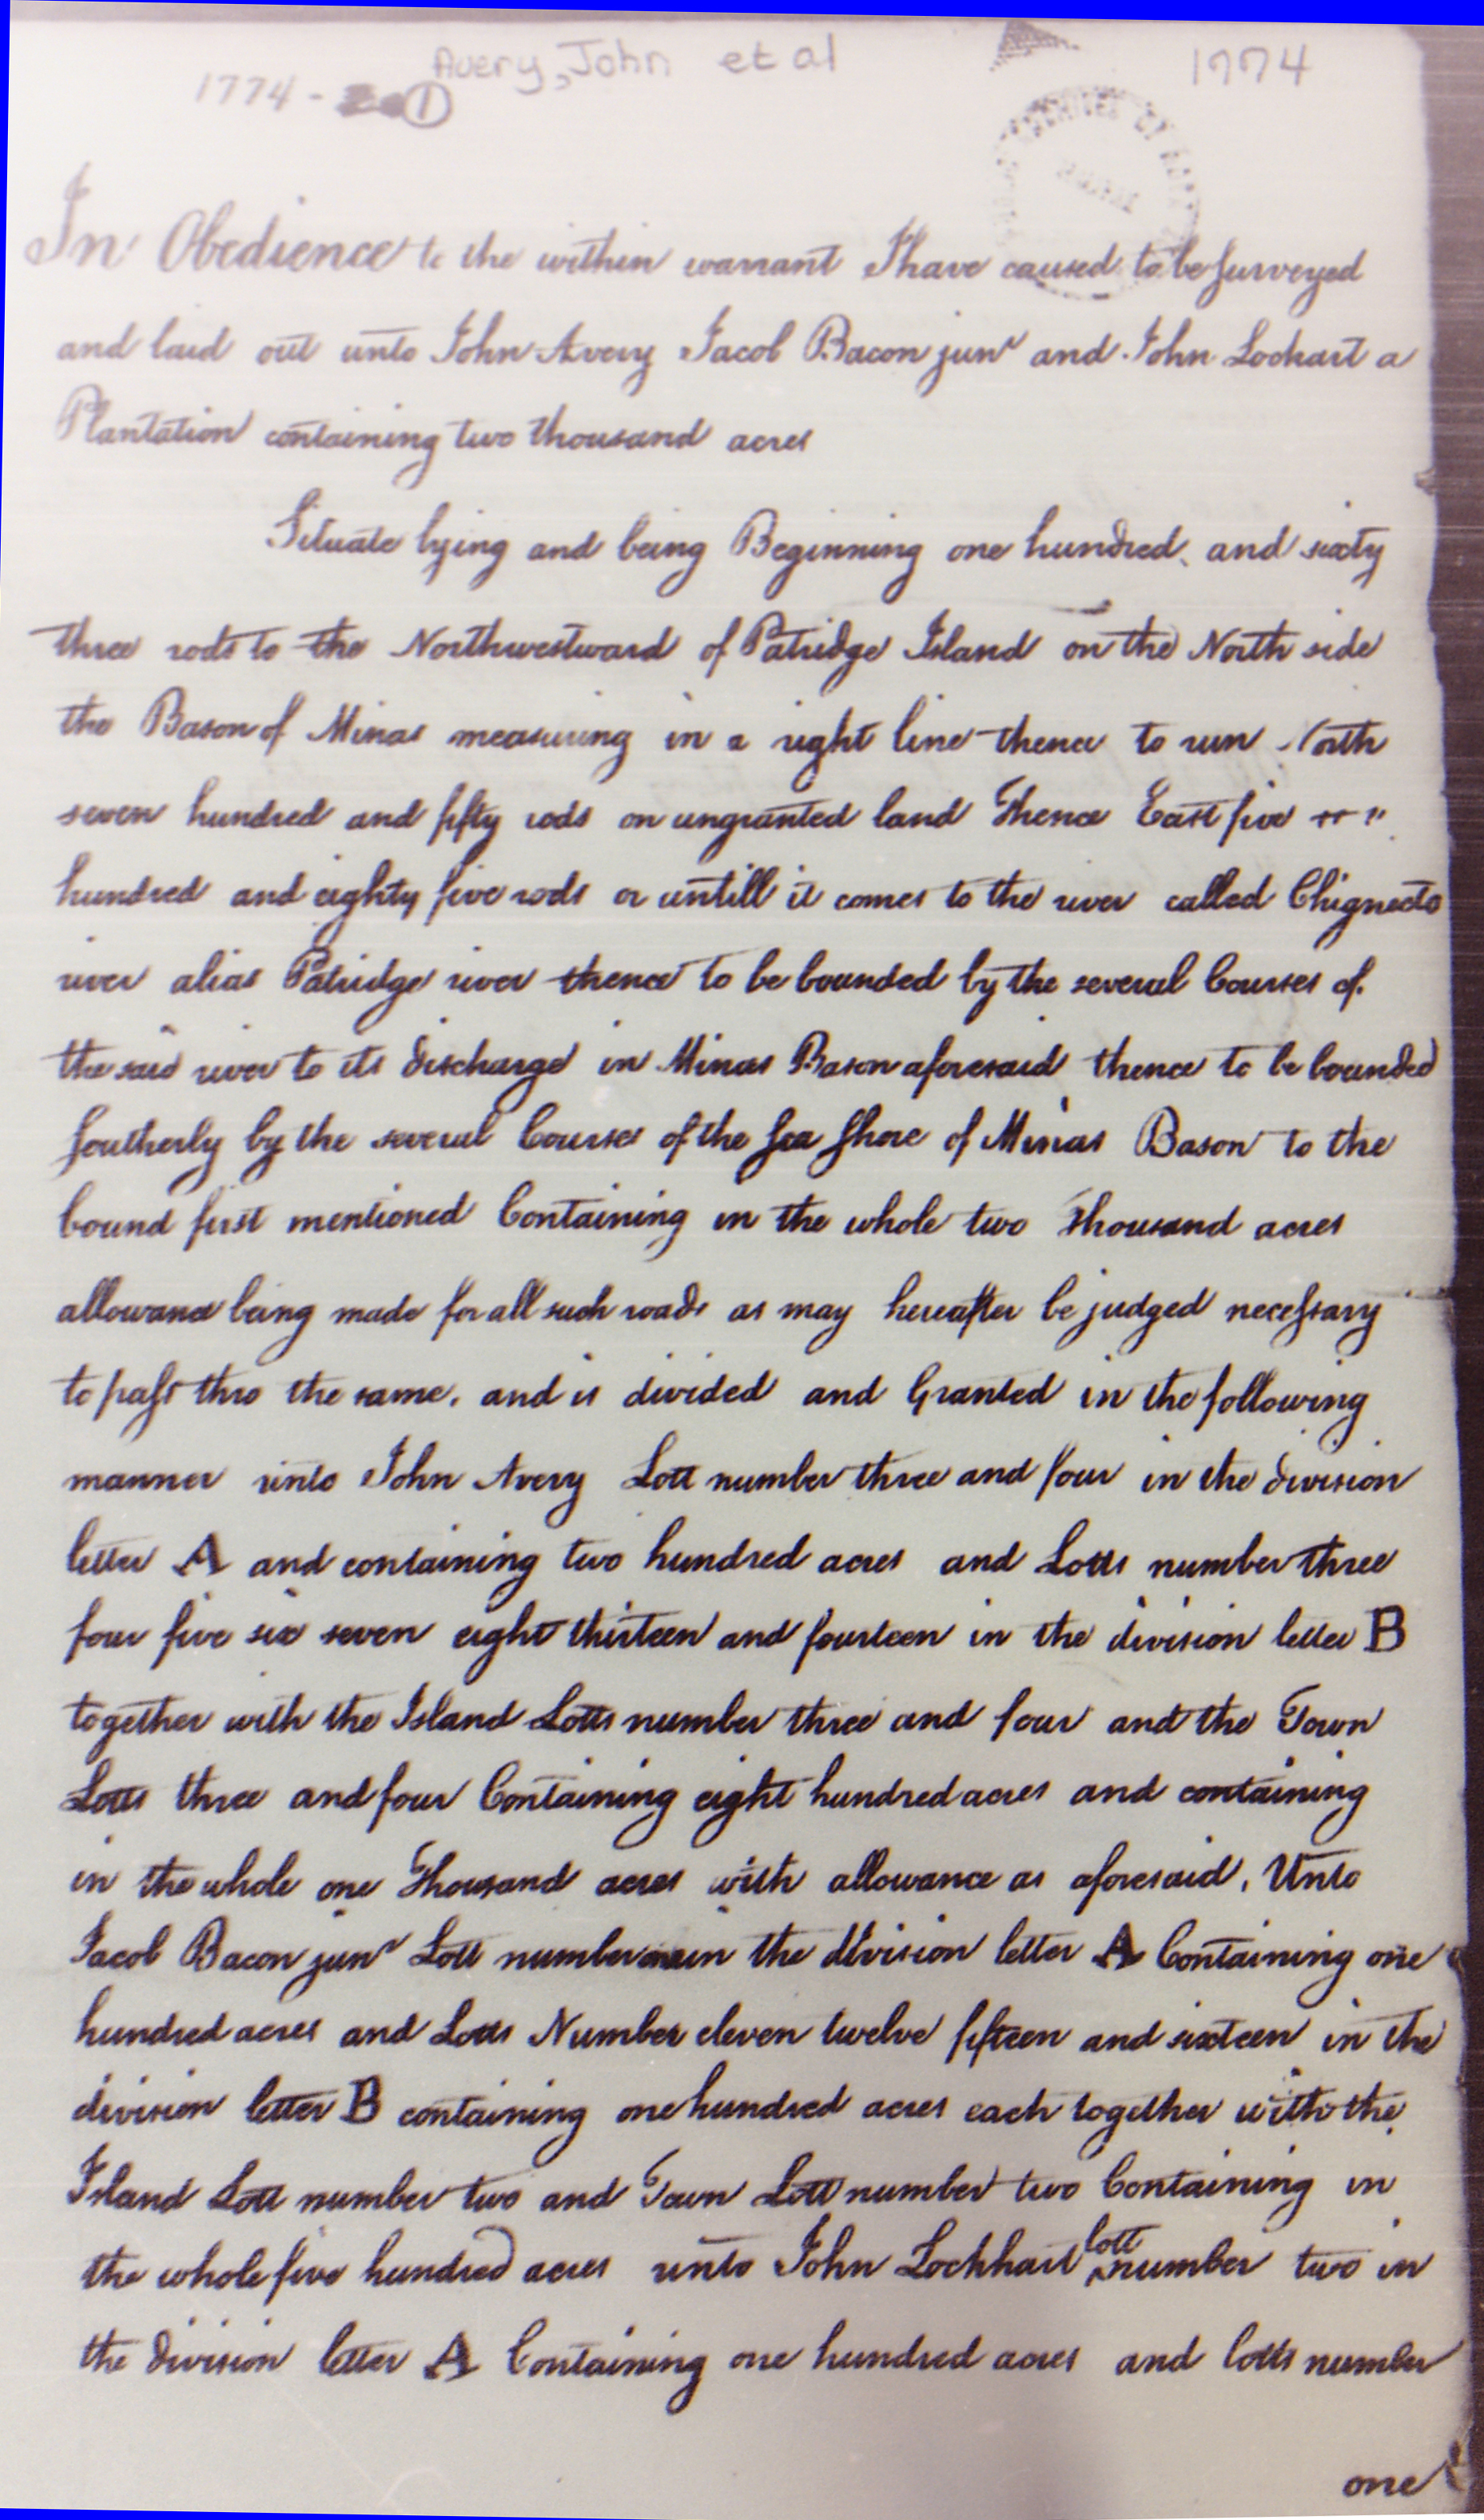 Avery, John et al
1774
1774 - 1
In Obedience to the within warrant I have caused to be surveyed
and laid out unto John Avery Jacob Bacon junr and John Lockart a
Plantation containing two thousand acres
Situate lying and being Beginning one hundred and sixty
three rods to the Northwestward of Patridge Island on the North side
the Bason of Minas measuring in a right line thence to run North
seven hundred and fifty rods on ungranted land Thence East five
hundred and eighty five rods or untill it comes to the river called Chignecto
river alias Patridge river thence to be bounded by the several Courses of
the said river to its discharge in Minas Bason aforesaid thence to be bounded
Southerly by the several Courses of the Sea Shore of Minas Bason to the
bound first mentioned Containing in the whole two Thousand acres
allowance being made for all such roads as may hereafter be judged necessary
to pass thro the same, and is divided and Granted in the following
manner unto John Avery Lott number three and four in the division
letter A and containing two hundred acres and Lotts number three
four five six seven eight thirteen and fourteen in the division letter B
together with the Island Lotts number three and four and the Town
Lotts three and four Containing eight hundred acres and containing
in the whole one Thousand acres with allowance as aforesaid, Unto
Jacob Bacon junr Lott number in the division letter A Containing one
hundred acres and Lotts Number eleven twelve fifteen and sixteen in the
division letter B containing one hundred acres each together with the
Island Lott number two and Town Lott number two Containing in
the whole five hundred acres unto John Lockhart lott number two in
the division letter A Containing one hundred acres and lotts number
one